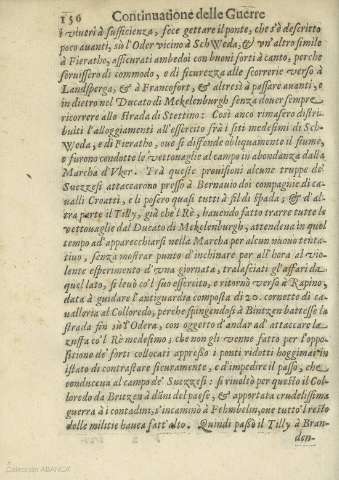 156 Continuatione delle Guerre
i viueri à sufficienza, fece gettare il ponte, che s'è descritto
poco auanti, sù l'Oder vicino à SchVVeda, & vn'altro simile
à Fieratho, assicurati ambedoi con buoni forti à canto, perche
seruissero di commodo, e di sicurezza alle scorrerie verso à
Landsperga, & à Francofort, & altresì à passare auanti, e
in dietro nel Ducato di Mekelenburgh senza douer sempre
ricorrere allo strada di Stettino: Così anco rimasero distri-
buiti l'alloggiamenti all'essercito frà i siti medesimi di Sch-
VVeda, e di Fieratho, oue si diffonde obliquamente il fiume,
e furono condotte le vettouaglie al campo in abondanza dalla
Marcha d'Vker. Trà queste prouisioni alcune truppe de'
Suezzesi attaccarono presso à Bernauio doi compagnie di ca-
ualli Croatti, e li posero quasi tutti à fil di spada, & d'al-
tra parte il Tilly, già che l Rè, hauendo fatto trarre tutte le
vettouaglie dal Ducato di Mekelenburgh, attendeua in quel
tempo ad'apparecchiarsi nella Marcha per alcun nuouo tenta-
tiuo, senza mostrar punto d'inchinare per all'hora al vio-
lente esperimento d'vna giornata, tralasciati gl'affari da
quel lato, si leuò co'l suo essercito, e ritornò verso à Rapino,
data à guidare l'antiguardia composta di 20. cornette di ca-
ualleria al Colloredo, perche spingendosi à Bintzen battesse la
strada sin sù l'Odera, con oggetto d'andar ad'attaccare la
zuffa co'l Rè medesimo; che non gli venne fatto per l'oppo-
sitione de' forti collocati appresso i ponti ridotti hoggimai in
istato di contrastare sicuramente, e d'impedire il passo, che
conduceua al campo de' Suezzesi: si riuoltò per questo il Col-
loredo da Britzen à dãni del paese, & apportata crudelissima
guerra à i contadini, s'incaminò à Fehmbelin, oue tutto'l resto
delle militie hauea fatt'alto. Quindi passò il Tilly à Bran-
den-
Colección ABANCA